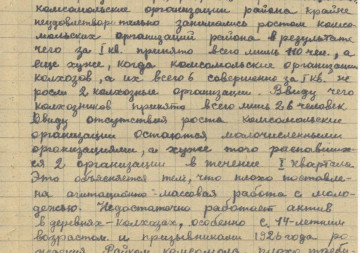 комсомольские организации района крайне
неудовлетворительно занимались ростом комсо-
мольских организаций района в результате
чего за I кв. принято всего лишь 110 чел., а
еще хуже, когда комсомольские организации
колхозов, а их всего 6 совершенно за I кв. не
росли 2 колхозные организации. Ввиду чего
колхозников принято всего лишь 26 человек
Ввиду отсутствия роста комсомольские
организации остаются малочисленными
организациями, а хуже того распавших-
ся 2 организации в течение I квартала.
Это объясняется тем, что плохо поставле-
на агитационно-массовая работа с моло-
дежью. Недостаточно работает актив
в деревнях-колхозах, особенно с 14-летним
возрастом и призывниками 1926 года ро-
ждения. Райком комсомола плохо требу-